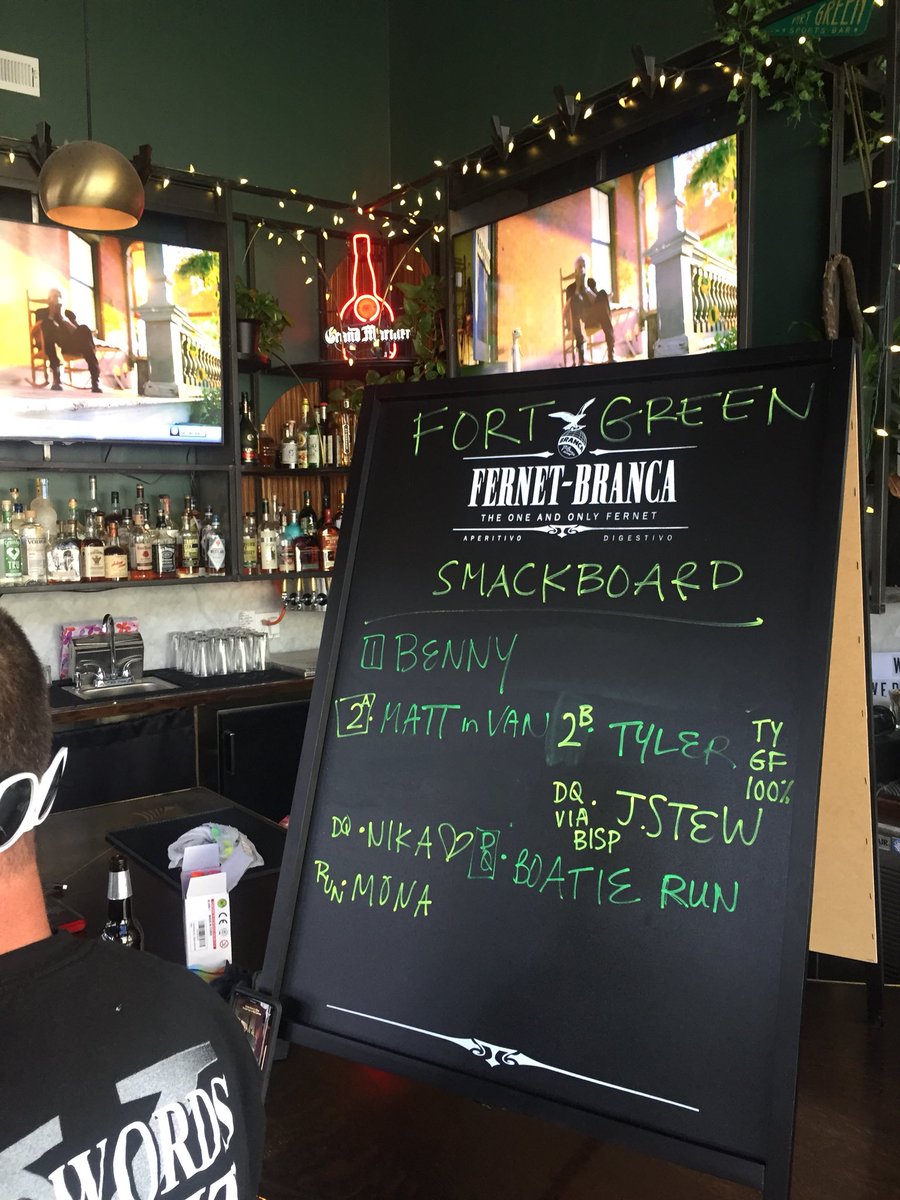 GREEN
SPORTS BAR
Grand Marnier
FORT GREEN
BRANCA
FERNET-BRANCA
THE ONE AND ONLY FERNET
APERITIVO DIGESTIVO
SMACKBOARD
1 BENNY
2A. MATT in VAN 2B. TYLER TY GF 100%
DQ VIA BISP . J.STEW
DQ . NIKA
BOATIE RUN
RUN: MONA
WORDS